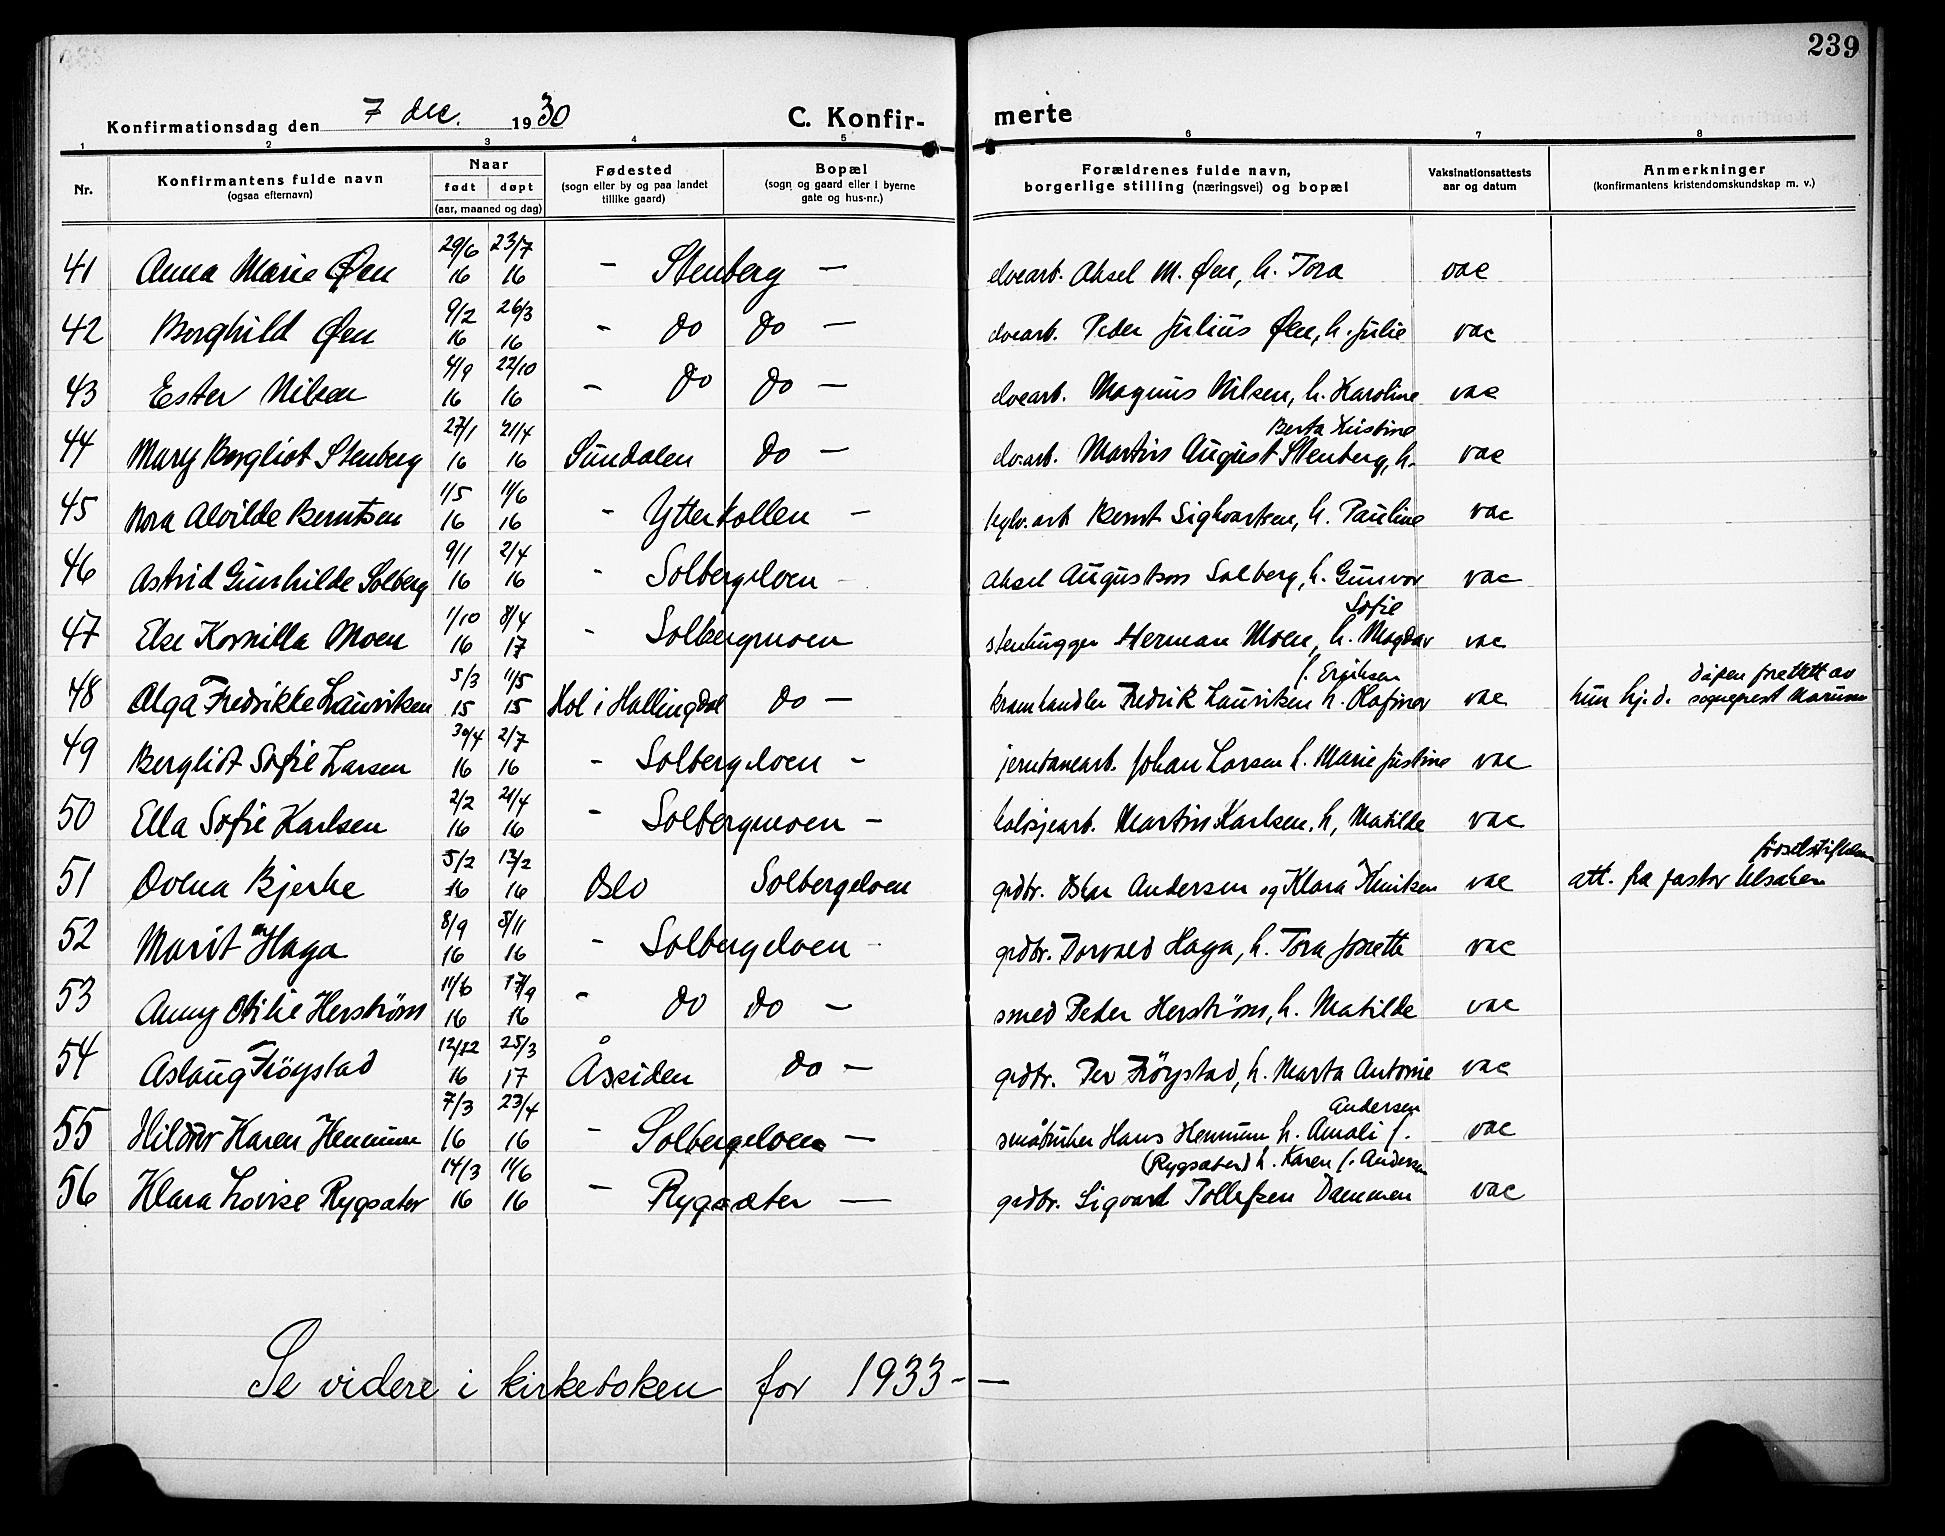 239
Konfirmationsdag den 7 dec. 1930
C. Konfir-
merte
1 2 3 4 5 6 7 8
Nr.
Konfirmantens fulde navn
(ogsaa efternavn)
Naar
født døpt
(aar, maaned og dag)
Fødested
(sogn eller by og paa landet
tillike gaard)
Bopæl
(sogn og gaard eller i byerne
gate og hus-nr.)
Forældrenes fulde navn,
borgerlige stilling (næringsvei) og bopæl
Vaksinationsattests
aar og datum
Anmerkninger
(konfirmantens kristendomskundskap m. v.)
29/6 23/7
41 Anna Marie Øen 16 16 - Stenberg - Aksel M. Øen, h. Tora vac
9/2 26/3
42 Borghild Øen 16 16 - do do - Peder Julius Øen, h. Julie vac
4/9 22/10
43 Ester Nilsen 16 16 - do do - Magnus Nilsen, h. Karoline vac
27/1 21/4 Berta Kristine
44 Mary Bergliot Stenberg 16 16 Sundalen do - Martin August Stenberg, h. vac
1/5 11/6
45 Nora Alvilde Berntsen 16 16 - Ytterkollen - Bernt Sighvartsen, h. Pauline vac
9/1 2/4
46 Astrid Gunhilde Solberg 16 16 - Solbergeloen - Aksel Augustson Solberg, h. Gunvor vac
1/10 8/4 Sofie
47 Else Kornilla Moen 16 17 - Solbergmoen stenhugger Herman Moen, h. Magda vac
5/3 11/5 f. Eriksen dåpen forettet av
48 Olga Fredrikke Lauritsen 15 15 Hol i Hallingdal do - kramhandler Fredrik Lauritsen h. vac hun hj.d. sogneprest
30/4 2/7
49 Bergliot Sofie Larsen 16 16 - Solbergeloen - jernbanearb. Johan Larsen h. Marie Justine vac
2/2 21/4
50 Ella Sofie Karlsen 16 16 - Solbergmoen - Martin Karlsen, h, Matilde vac
5/2 13/2 fødselsstiftelsen
51 Bjerke 16 16 Oslo Solbergeloen grdbr. Oskar Andersen og Klara vac att. fra pastor
8/9 5/11
52 Marit Haga 16 16 - Solbergeloen - grdbr. Torvald Haga, h. Tora Josette vac
11/6 17/9
53 Anny Otilie Herstrøm 16 16 - do do - smed Peder Herstrøm, h. Matilde vac
12/12 25/3
54 Aslaug Frøystad 16 17 Åssiden do - grdbr. Per Frøystad, h. Marta Antonie vac
7/3 23/4 Andersen
55 Hildur Karen Hennum 16 16 - Solbergeloen - småbruker Hans Hennum h. Amali f. vac
14/3 11/6 (Rygsæter) h. Karen f. Andersen
56 Klara Lovise Rygsæter 16 16 - Rygsæter - grdbr. Sigvard Tollefsen Dammen vac
Se videre i kirkeboken for 1933 - -